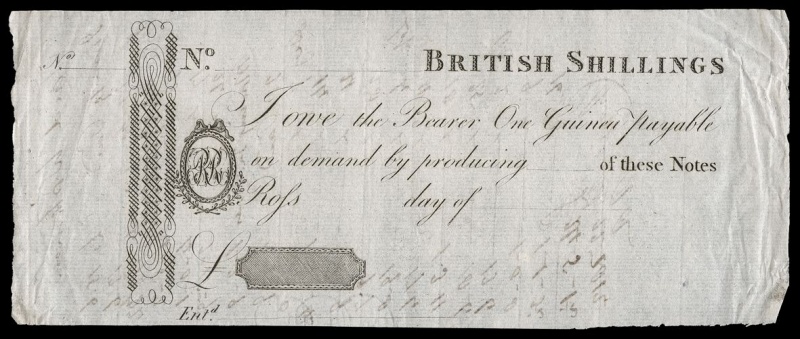 No. No. BRITISH SHILLINGS
I owe the Bearer One Guinea payable
on demand by producing of these Notes
Roſs day of
£
Entd